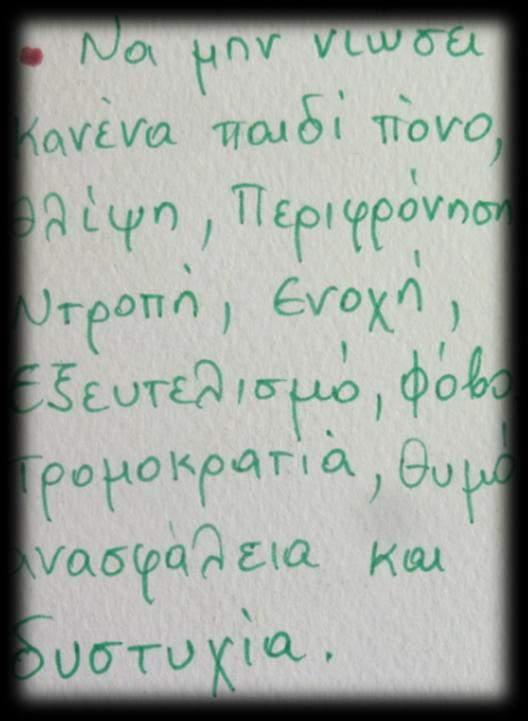 • Να μην νιώσει
κανένα παιδί πόνο,
θλίψη, Περιφρόνηση
Ντροπή, Ενοχή,
Εξευτελισμό, φόβο
τρομοκρατία, θυμό
ανασφάλεια και
δυστυχία.